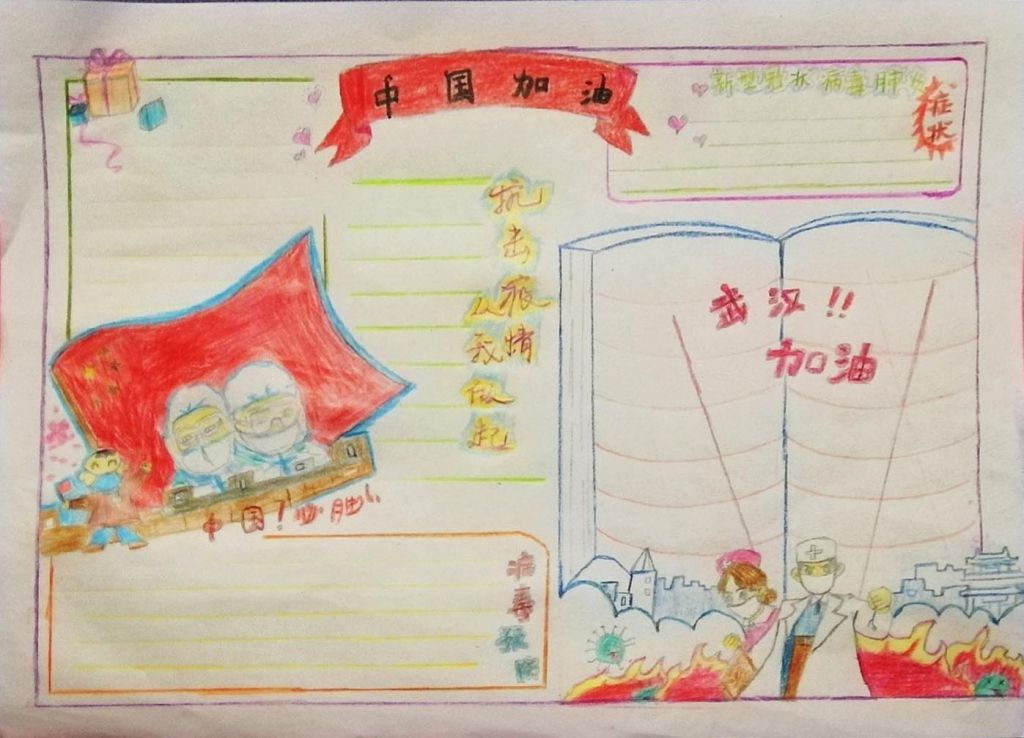 中国加油
新型冠状病毒肺炎
症状
抗击疫情
从我做起
武汉!!
加油
中国!必胜!!
病毒